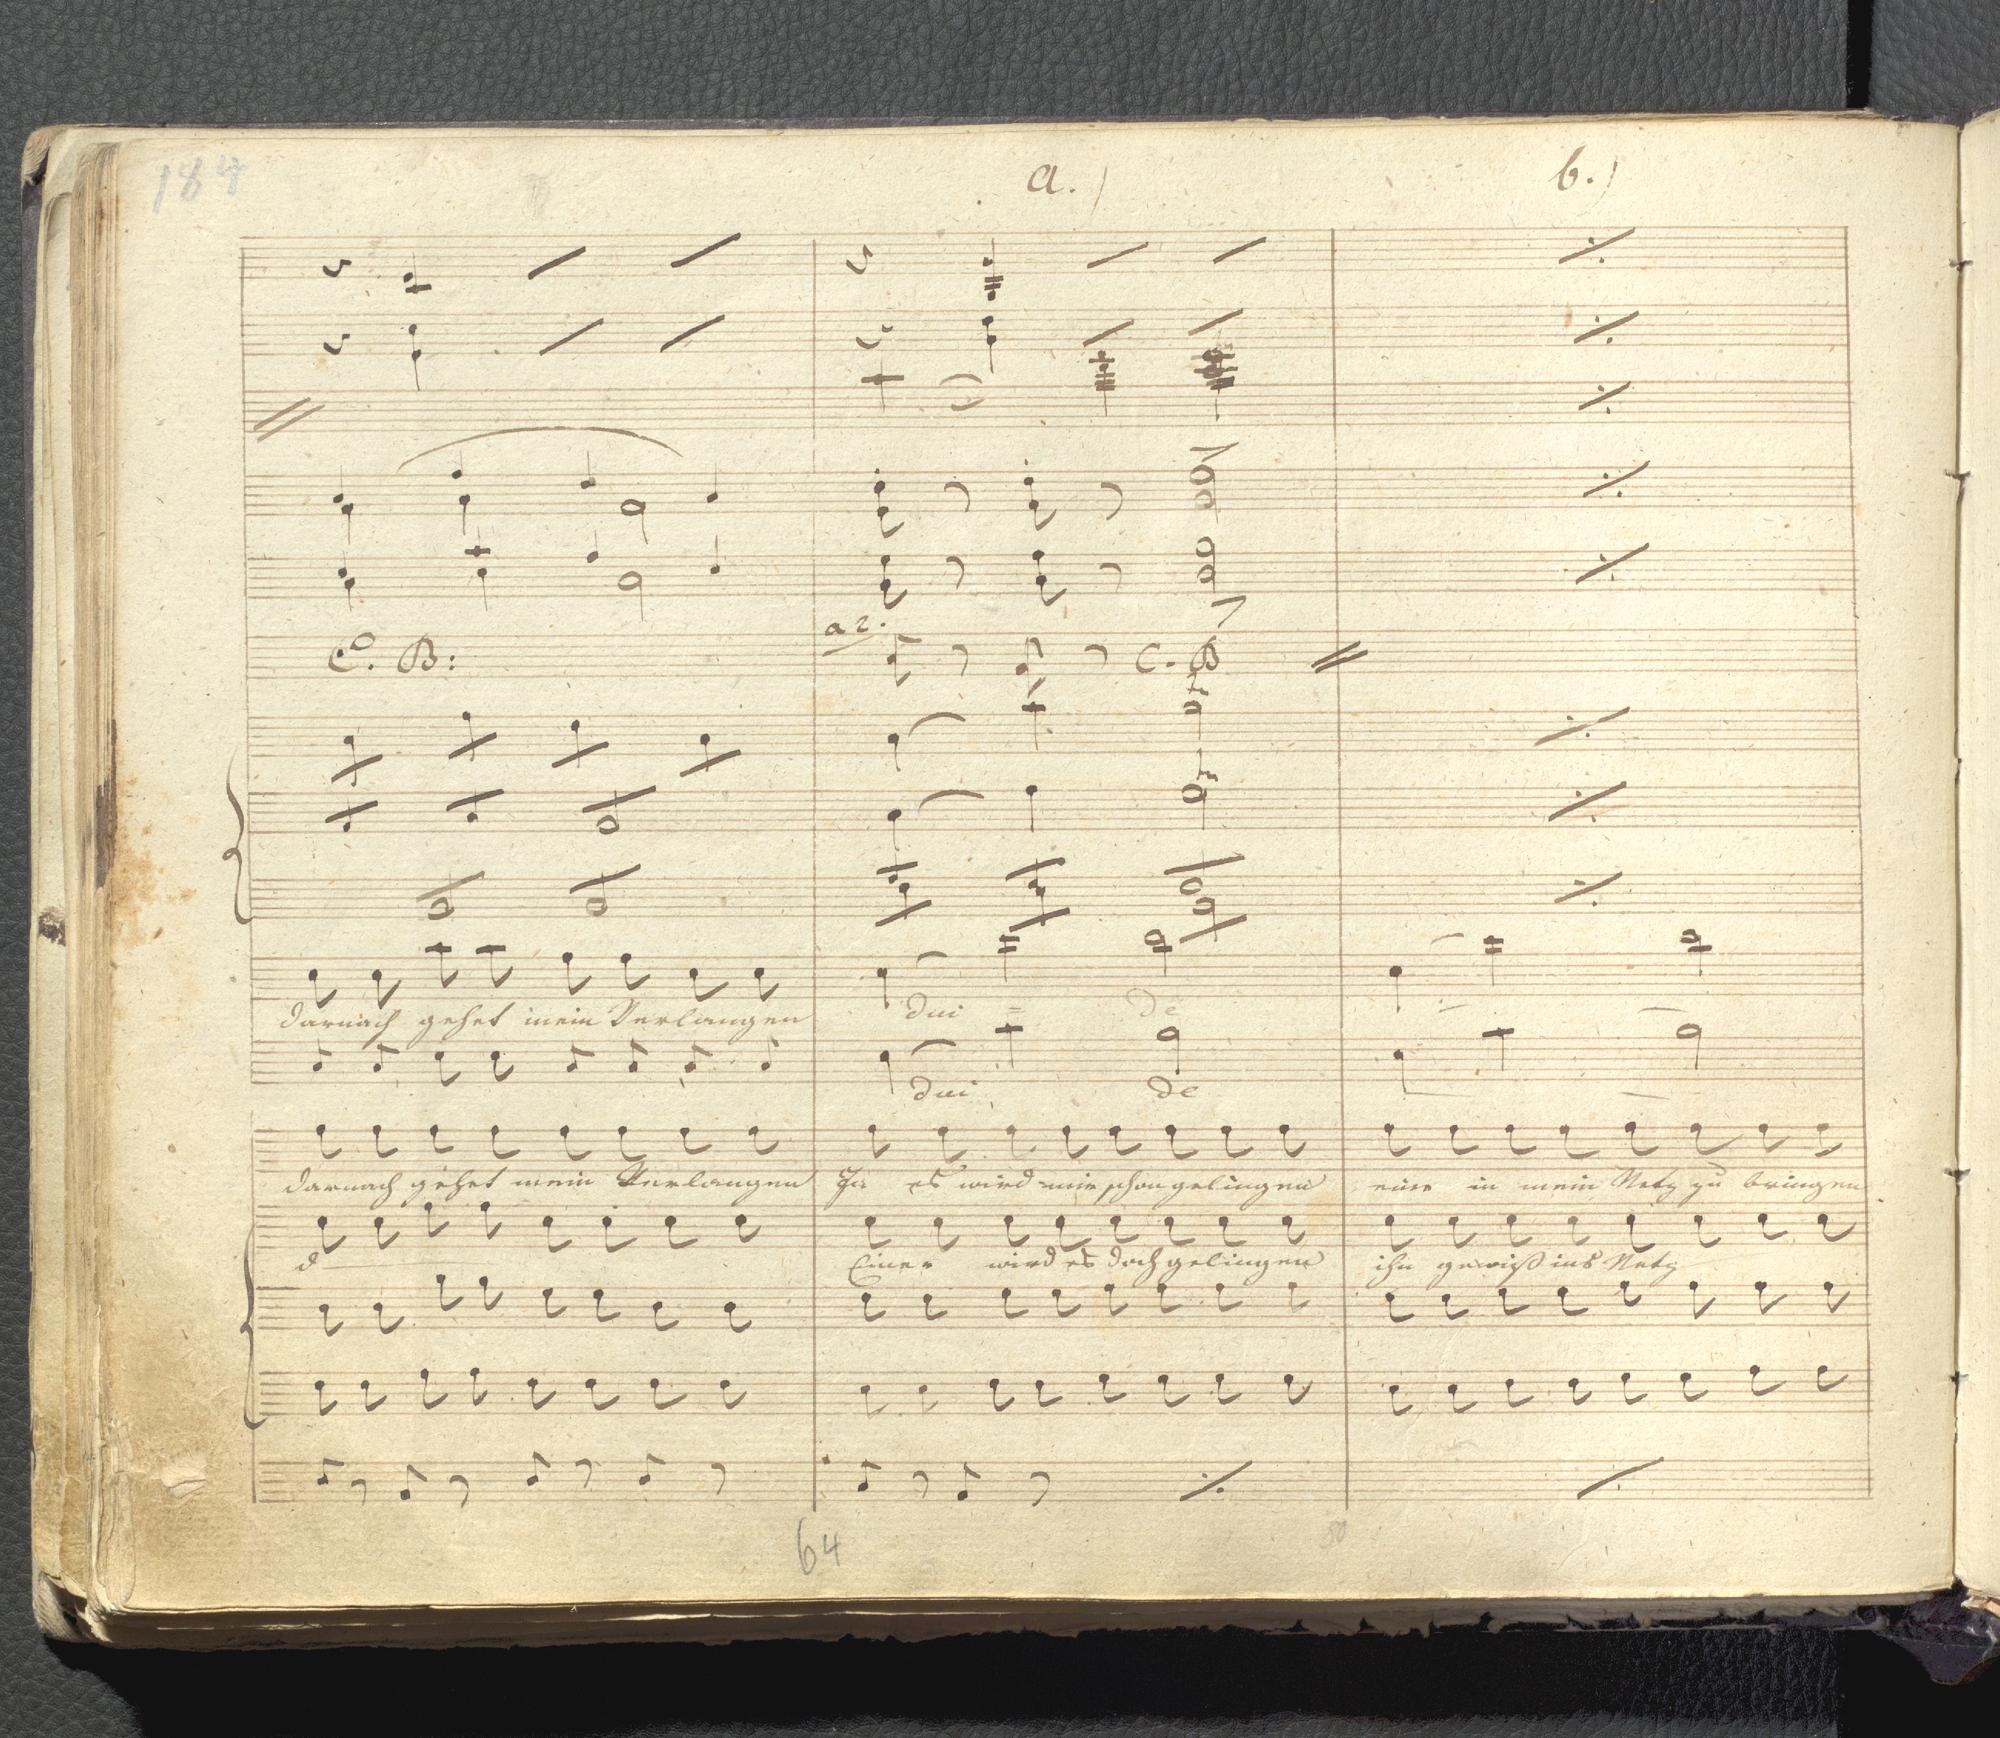 184
a.)
b.)
a 2.
C.o B:
C. B
darnach gehet mein Verlangen
dui = de
dui de
darnach gehet mein Verlangen Ja es wird mir schon gelingen eine in mein Netz zu bringen
d Einer wird es doch gelingen ihn gewiß ins Netz
64